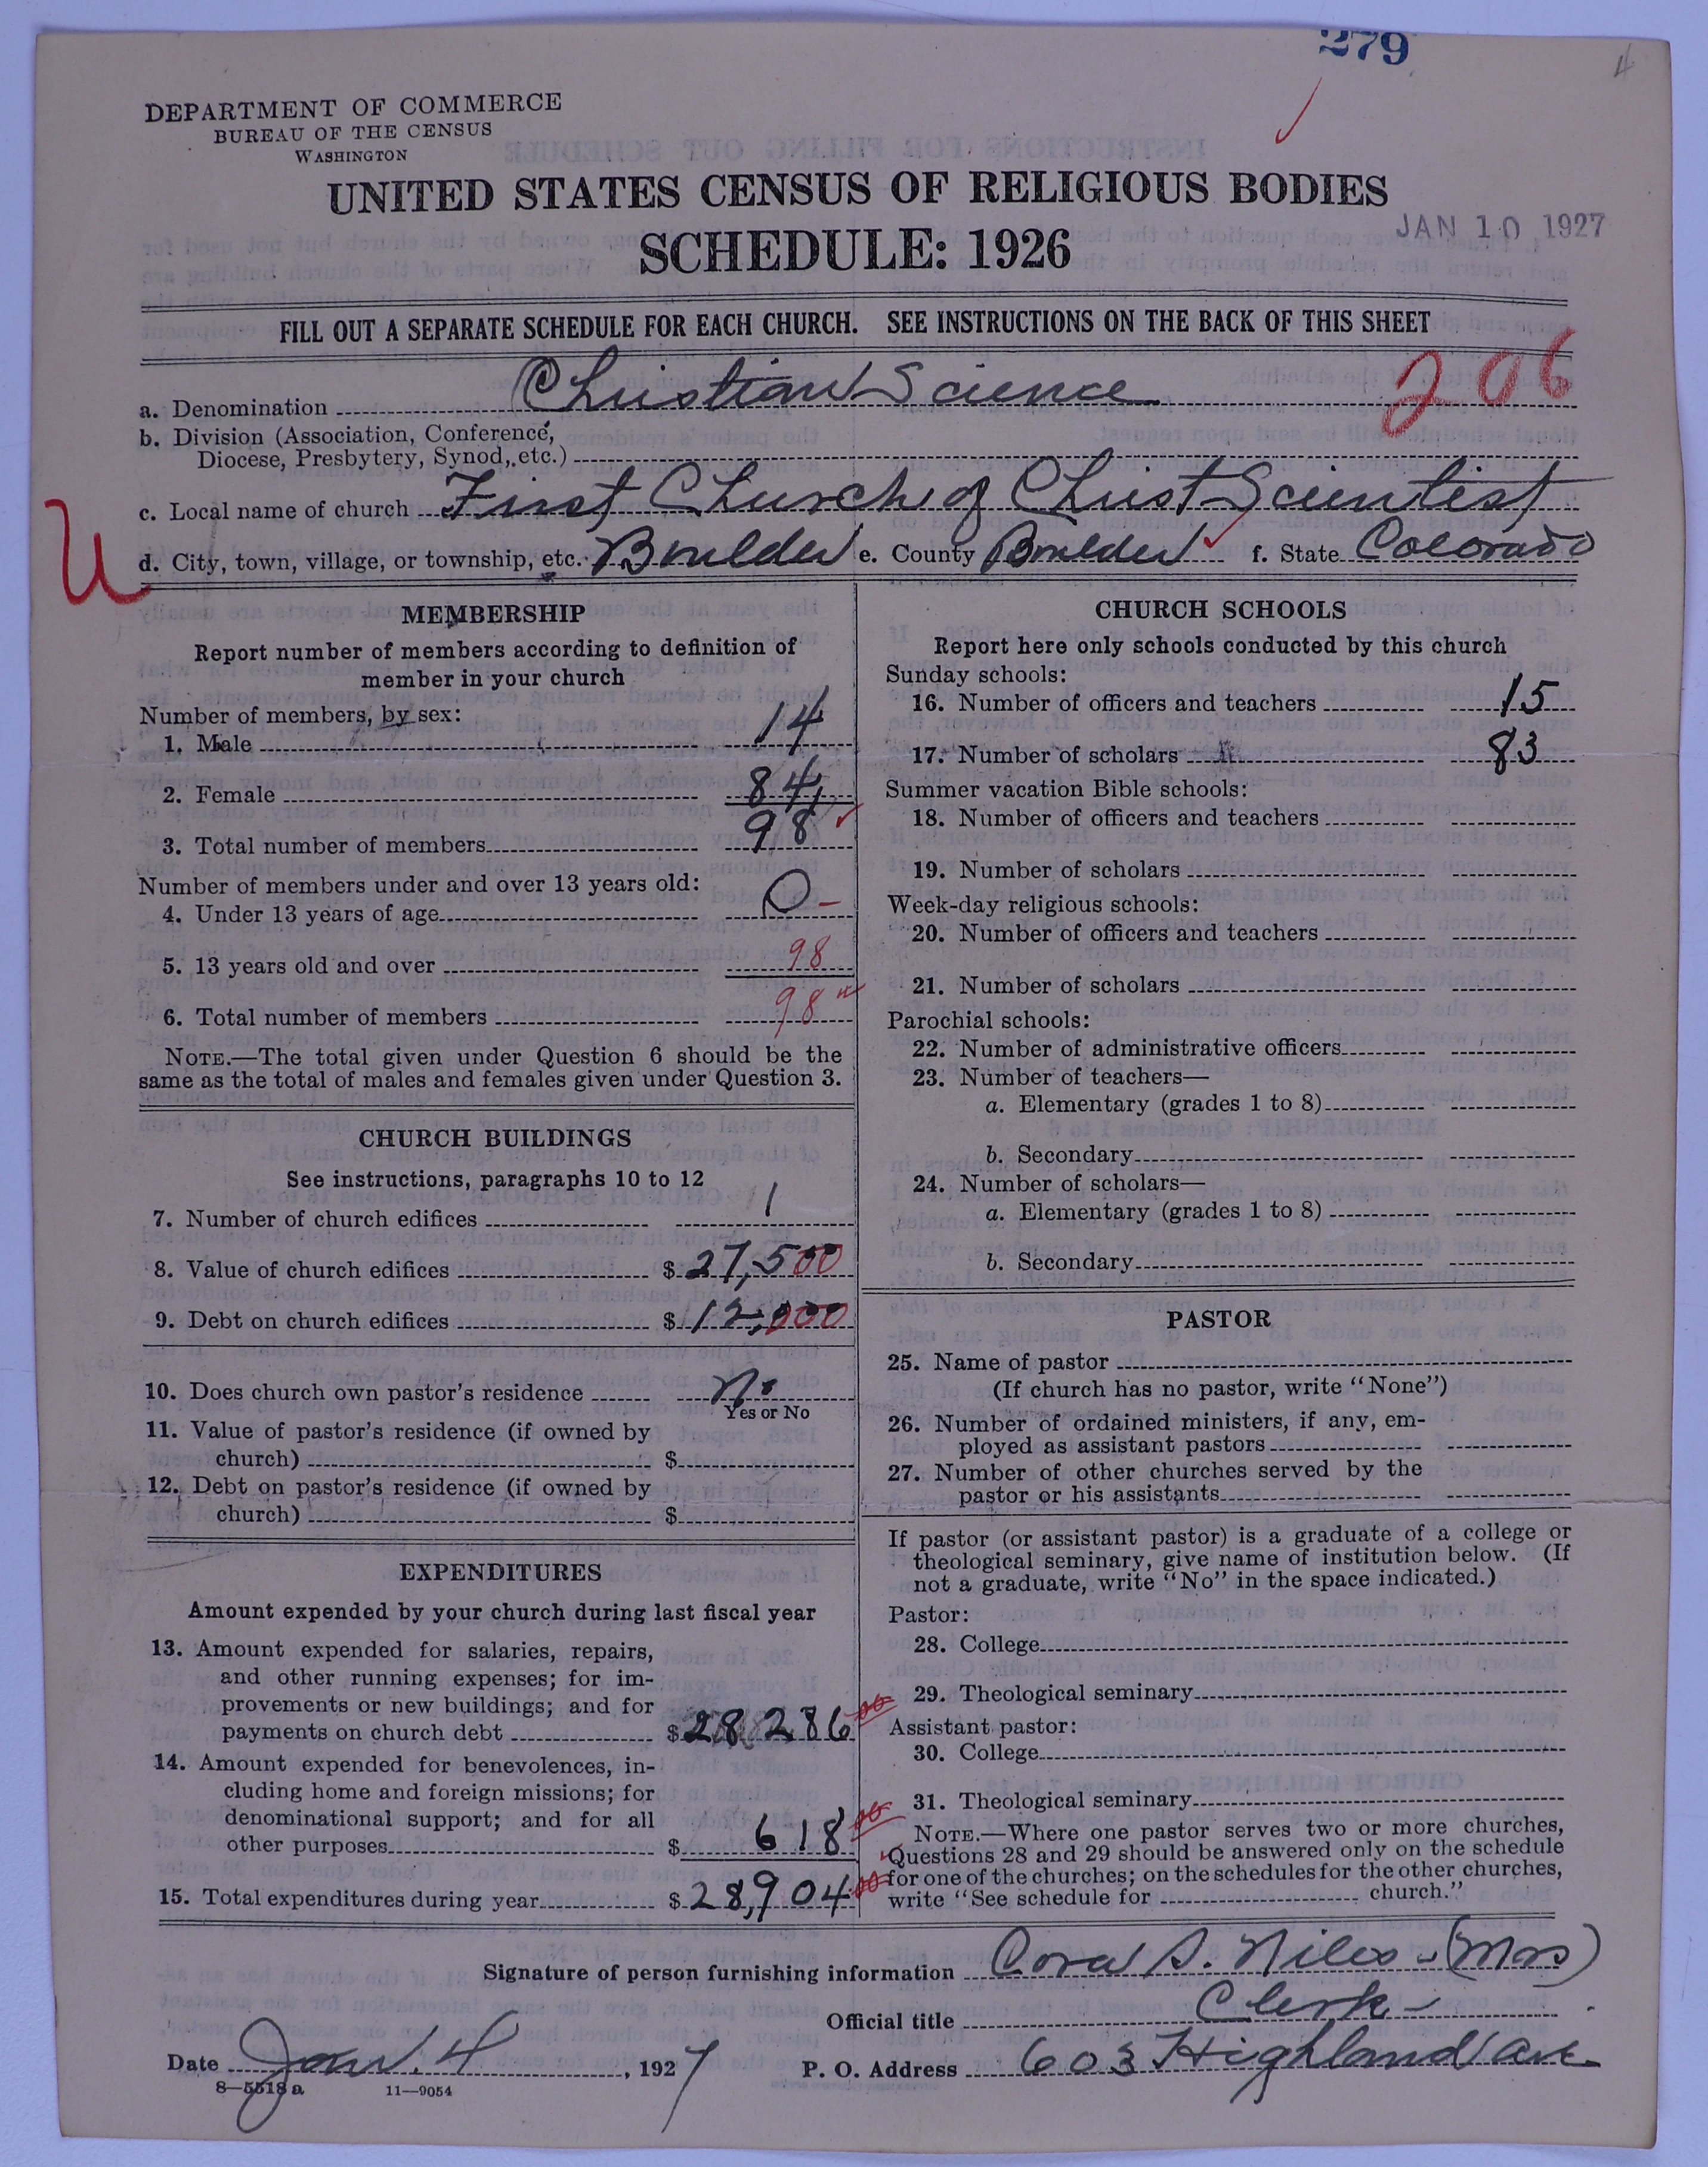 279
4
DEPARTMENT OF COMMERCE
BUREAU OF THE CENSUS
WASHINGTON
UNITED STATES CENSUS OF RELIGIOUS BODIES
JAN 10 1927
SCHEDULE: 1926
FILL OUT A SEPARATE SCHEDULE FOR EACH CHURCH. SEE INSTRUCTIONS ON THE BACK OF THIS SHEET
206
a. Denomination Christian Science
b. Division (Association, Conference,
Diocese, Presbytery, Synod, etc.)
c. Local name of church First Church of Christ Scientist
U
d. City, town, village, or township, etc. Boulder e. County Boulder f. State Colorado
MEMBERSHIP
Report number of members according to definition of
member in your church
Number of members, by sex:
1. Male 14
2. Female 84
3. Total number of members 98
Number of members under and over 13 years old:
4. Under 13 years of age 0 -
5. 13 years old and over 98
6. Total number of members 98
NOTE.—The total given under Question 6 should be the
same as the total of males and females given under Question 3.
CHURCH BUILDINGS
See instructions, paragraphs 10 to 12
7. Number of church edifices 1
8. Value of church edifices $ 27,500
9. Debt on church edifices $ 12,000
10. Does church own pastor's residence No
Yes or No
11. Value of pastor's residence (if owned by
church) $
12. Debt on pastor's residence (if owned by
church) $
EXPENDITURES
Amount expended by your church during last fiscal year
13. Amount expended for salaries, repairs,
and other running expenses; for im-
provements or new buildings; and for
payments on church debt $ 28 286 00
14. Amount expended for benevolences, in-
cluding home and foreign missions; for
denominational support; and for all
other purposes $ 618 00
15. Total expenditures during year $ 28,904 00
CHURCH SCHOOLS
Report here only schools conducted by this church
Sunday schools:
16. Number of officers and teachers 15
17. Number of scholars 83
Summer vacation Bible schools:
18. Number of officers and teachers
19. Number of scholars
Week-day religious schools:
20. Number of officers and teachers
21. Number of scholars
Parochial schools:
22. Number of administrative officers
23. Number of teachers—
a. Elementary (grades 1 to 8)
b. Secondary
24. Number of scholars—
a. Elementary (grades 1 to 8)
b. Secondary
PASTOR
25. Name of pastor
(If church has no pastor, write "None")
26. Number of ordained ministers, if any, em-
ployed as assistant pastors
27. Number of other churches served by the
pastor or his assistants
If pastor (or assistant pastor) is a graduate of a college or
theological seminary, give name of institution below. (If
not a graduate, write "No" in the space indicated.)
Pastor:
28. College
29. Theological seminary
Assistant pastor:
30. College
31. Theological seminary
NOTE.—Where one pastor serves two or more churches,
Questions 28 and 29 should be answered only on the schedule
for one of the churches; on the schedules for the other churches,
write "See schedule for church."
Signature of person furnishing information Cora S. Niles - (Mrs)
Official title Clerk -
Date Jan. 4, 1927 P. O. Address 603 Highland Ave.
8—5518 a 11—9054